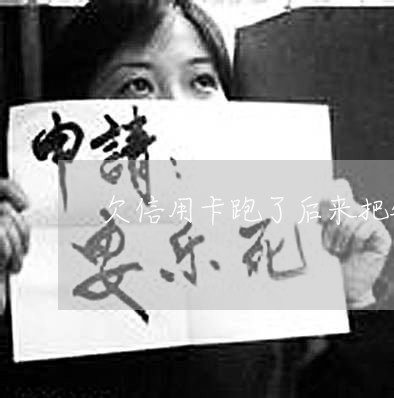 申請：
欠信用卡跑了后来把
要乐死